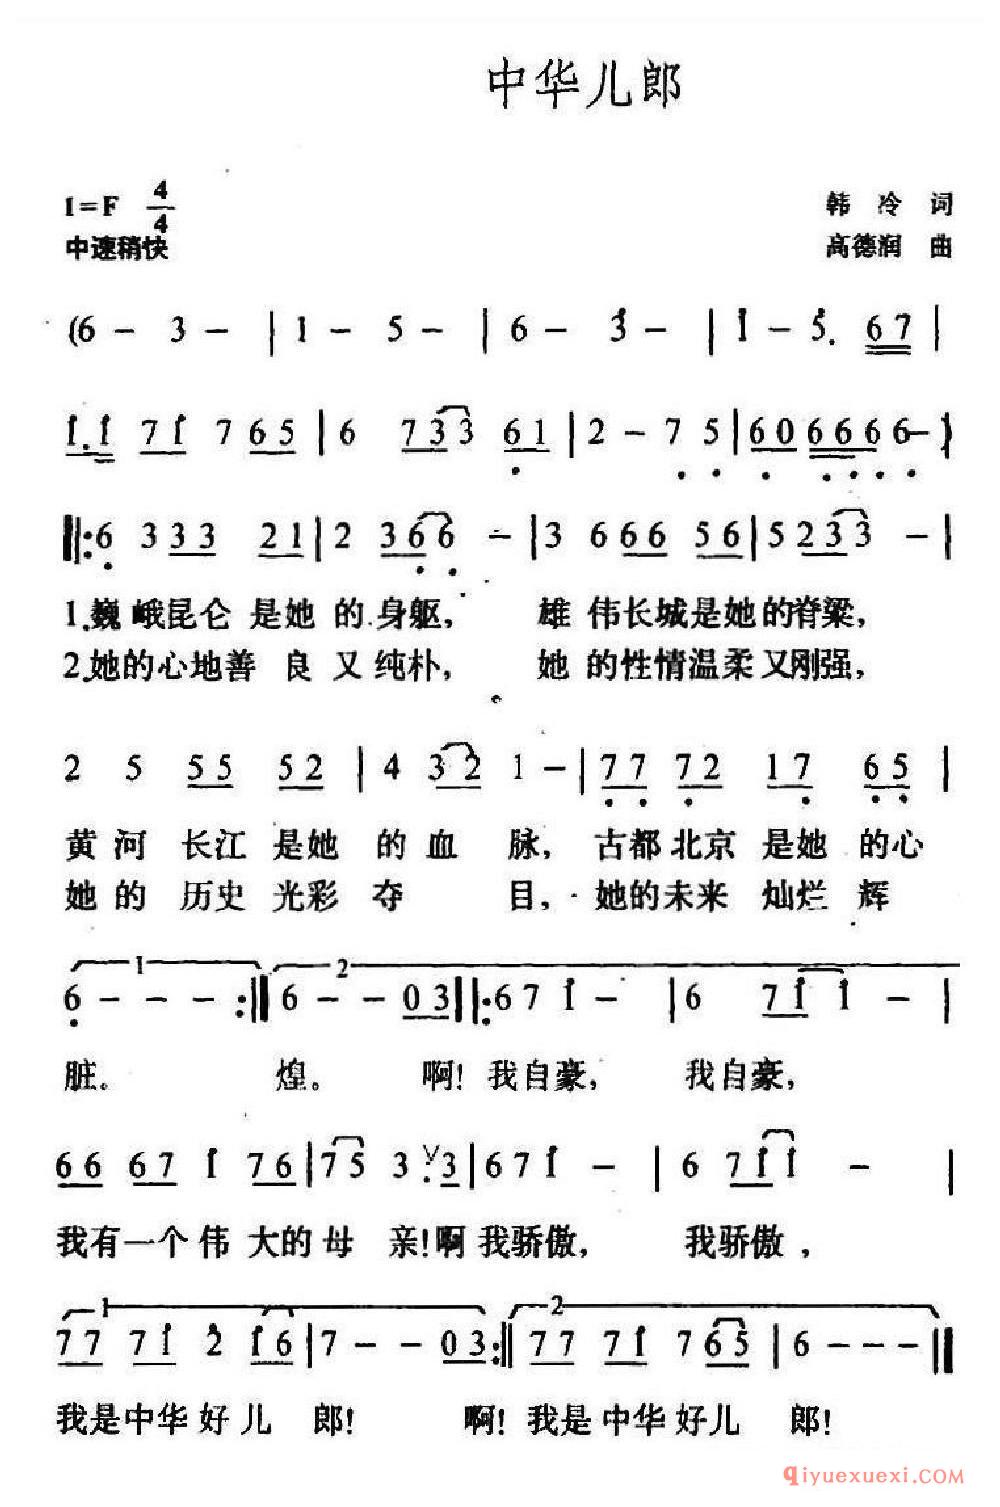 中华儿郎
1=F 4/4
韩冷词
中速稍快
高德润 曲
(6 - 3 - | 1 - 5 - | 6 - 3 - | 1 - 5. 67 |
1.1 71 7 65 | 6 733 61 | 2 - 7 5 | 60 6666 - )
6 333 21 | 2 366 - | 3 666 56 | 5 233 - |
1.巍峨昆仑是她的身躯，雄伟长城是她的脊梁，
2.她的心地善良又纯朴，她的性情温柔又刚强，
2 5 55 52 | 4 32 1 - | 77 72 17 65 |
黄河长江是她的血脉，古都北京是她的心
她的历史光彩夺目，她的未来灿烂辉
1 2
6 - - - :|| 6 - - 03 ||: 67 1 - | 6 71 1 - |
脏。煌。啊！我自豪，我自豪，
66 67 1 76 | 75 3 V 3 | 67 1 - | 6 71 1 - |
我有一个伟大的母亲！啊我骄傲，我骄傲，
1 2
77 71 2 16 | 7 - - 03 :|| 77 71 7 65 | 6 - - - ||
我是中华好儿郎！啊！我是中华好儿郎！
qiyuexuexi.com